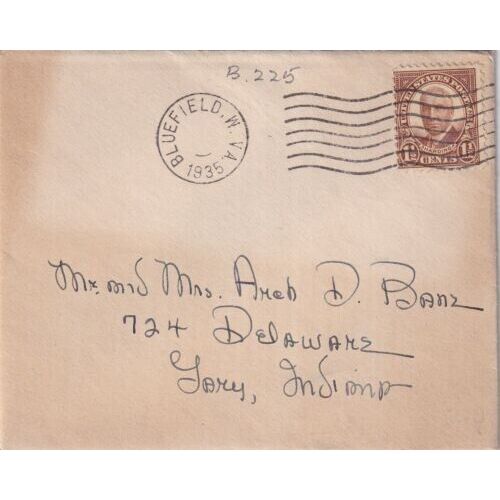 B. 225
UNITED STATES POSTAGE
BLUEFIELD, W. VA.
1935
HARDING
1½ CENTS 1½
Mr. and Mrs. Arch D. Banz
724 Delaware
Gary, Indiana